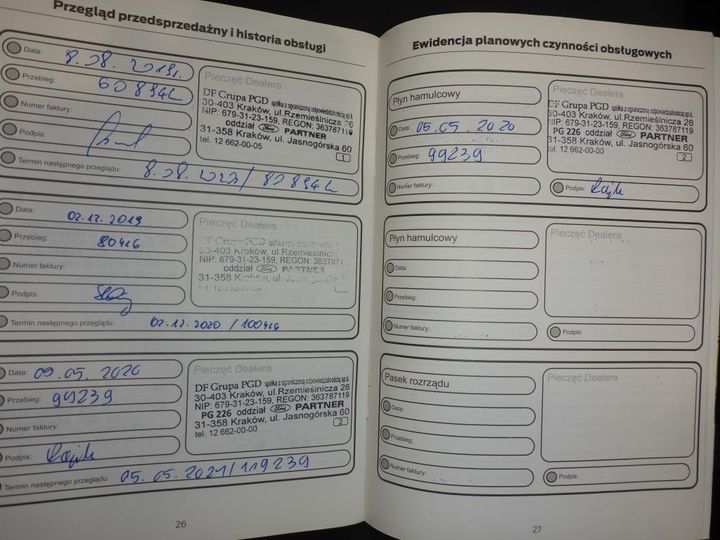 Przegląd przedsprzedażny i historia obsługi
Data: 8.08.2019r.
Przebieg: 60894L
Numer faktury:
Podpis:
Termin następnego przeglądu: 8.08.2020/80894L
Pieczęć Dealera
DF Grupa PGD spółka z ograniczoną odpowiedzialnością sp.k.
30-403 Kraków, ul.Rzemieślnicza 26
NIP: 679-31-23-159, REGON: 363787119
oddział Ford PARTNER
31-358 Kraków, ul. Jasnogórska 60
tel. 12 662-00-05
1
Data: 02.12.2019
Przebieg: 80416
Numer faktury:
Podpis:
Termin następnego przeglądu: 02.12.2020/100416
Pieczęć Dealera
DF Grupa PGD
30-403 Kraków, ul. Rzemieślnicza 26
NIP: 679-31-23-159, REGON: 363787
oddział Ford PARTNER
31-358 Kraków, ul. Jasnogórska 60
Data: 09.05.2020
Przebieg: 99239
Numer faktury:
Podpis:
Termin następnego przeglądu: 05.05.2021/119239
Pieczęć Dealera
DF Grupa PGD spółka z ograniczoną odpowiedzialnością sp.k.
30-403 Kraków, ul. Rzemieślnicza 26
NIP: 679-31-23-159, REGON: 363787119
PG 226 oddział Ford PARTNER
31-358 Kraków, ul. Jasnogórska 60
tel. 12 662-00-05
2
26
Ewidencja planowych czynności obsługowych
Płyn hamulcowy
Data: 05.05.2020
Przebieg: 99239
Numer faktury:
Pieczęć Dealera
DF Grupa PGD spółka z ograniczoną odpowiedzialnością sp.k.
30-403 Kraków, ul.Rzemieślnicza 26
NIP: 679-31-23-159, REGON: 363787119
PG 226 oddział Ford PARTNER
31-358 Kraków, ul. Jasnogórska 60
tel. 12 662-00-05
2
Podpis:
Płyn hamulcowy
Data:
Przebieg:
Numer faktury:
Pieczęć Dealera
Podpis:
Pasek rozrządu
Data:
Przebieg:
Numer faktury:
Pieczęć Dealera
Podpis:
27